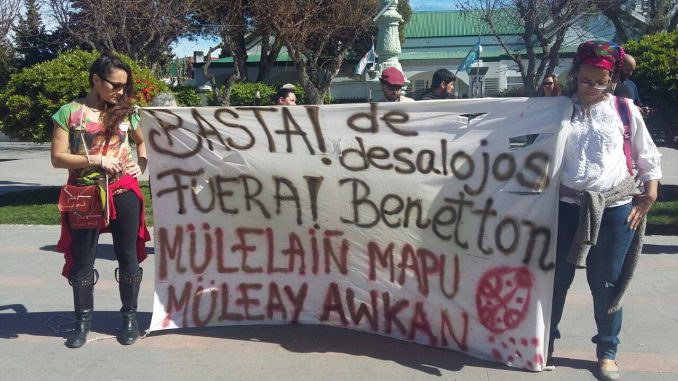 BASTA! de desalojos
FUERA! Benetton
MÜLELAIÑ MAPU
MÜLEAY AWKAN